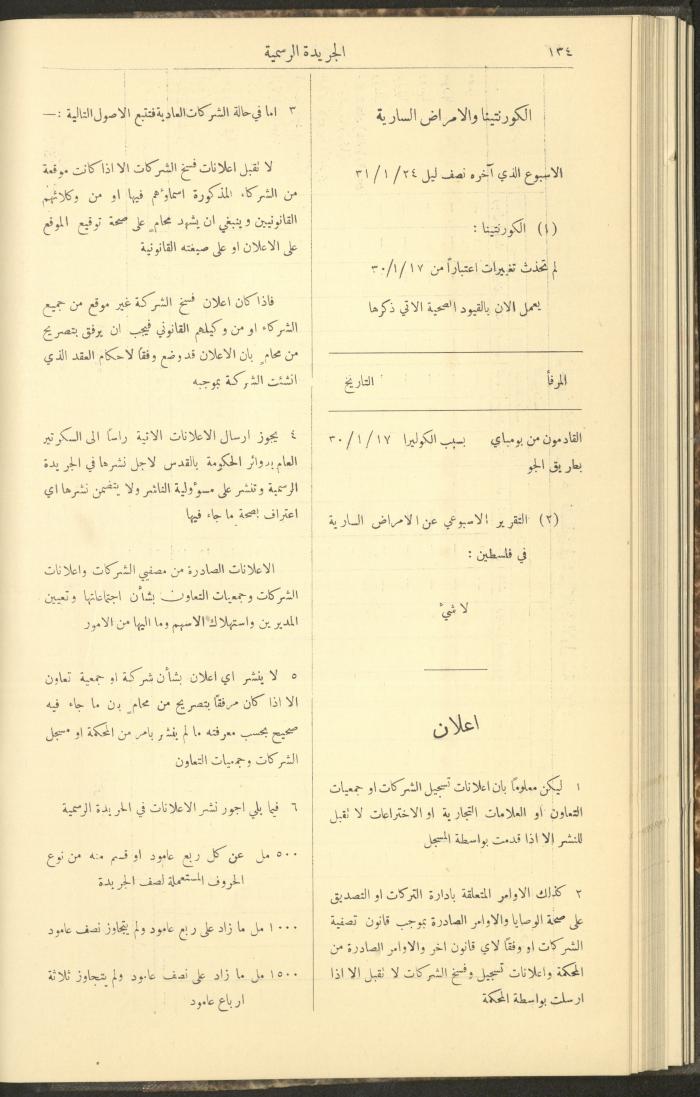 ١٣٤
الجريدة الرسمية
الكورنتينا والامراض السارية
الاسبوع الذي آخره نصف ليل ٢٤ / ١ / ٣١
(١) الكورنتينا :
لم تحدث تغييرات اعتباراً من ١٧ /١/ ٣٠
يعمل الان بالقيود الصحية الاتي ذكرها
المرفأ التاريخ
القادمون من بومباي بسبب الكوليرا ١٧ / ١ / ٣٠
بطريق الجو
(٢) التقرير الاسبوعي عن الامراض السارية
في فلسطين :
لا شيء
اعلان
١ ليكن معلوماً بان اعلانات تسجيل الشركات او جمعيات
التعاون او العلامات التجارية او الاختراعات لا تقبل
للنشر الا اذا قدمت بواسطة المسجل
٢ كذلك الاوامر المتعلقة بادارة التركات او التصديق
على صحة الوصايا والاوامر الصادرة بموجب قانون تصفية
الشركات او وفقاً لاي قانون اخر والاوامر الصادرة من
المحكمة واعلانات تسجيل وفسخ الشركات لا تقبل الا اذا
ارسلت بواسطة المحكمة
٣ اما في حالة الشركات العادية فتتبع الاصول التالية :—
لا تقبل اعلانات فسخ الشركات الا اذا كانت موقعة
من الشركاء المذكورة اسماؤهم فيها او من وكلائهم
القانونيين وينبغي ان يشهد محامٍ على صحة توقيع الموقع
على الاعلان او على صيغته القانونية
فاذا كان اعلان فسخ الشركة غير موقع من جميع
الشركاء او من وكيلهم القانوني فيجب ان يرفق بتصريح
من محامٍ بان الاعلان قد وضع وفقاً لاحكام العقد الذي
انشئت الشركة بموجبه
٤ يجوز ارسال الاعلانات الاتية راساً الى السكرتير
العام بدوائر الحكومة بالقدس لاجل نشرها في الجريدة
الرسمية وتنشر على مسوؤلية الناشر ولا يتضمن نشرها اي
اعتراف بصحة ما جاء فيها
الاعلانات الصادرة من مصفيي الشركات واعلانات
الشركات وجمعيات التعاون بشأن اجتماعاتها وتعيين
المديرين واستهلاك الاسهم وما اليها من الامور
٥ لا ينشر اي اعلان بشأن شركة او جمعية تعاون
الا اذا كان مرفقاً بتصريح من محامٍ بان ما جاء فيه
صحيح بحسب معرفته ما لم ينشر بامر من المحكمة او مسجل
الشركات وجمعيات التعاون
٦ فيما يلي اجور نشر الاعلانات في الجريدة الرسمية
٥٠٠ مل عن كل ربع عامود او قسم منه من نوع
الحروف المستعملة لصف الجريدة
١٠٠٠ مل ما زاد على ربع عامود ولم يتجاوز نصف عامود
١٥٠٠ مل ما زاد على نصف عامود ولم يتجاوز ثلاثة
ارباع عامود